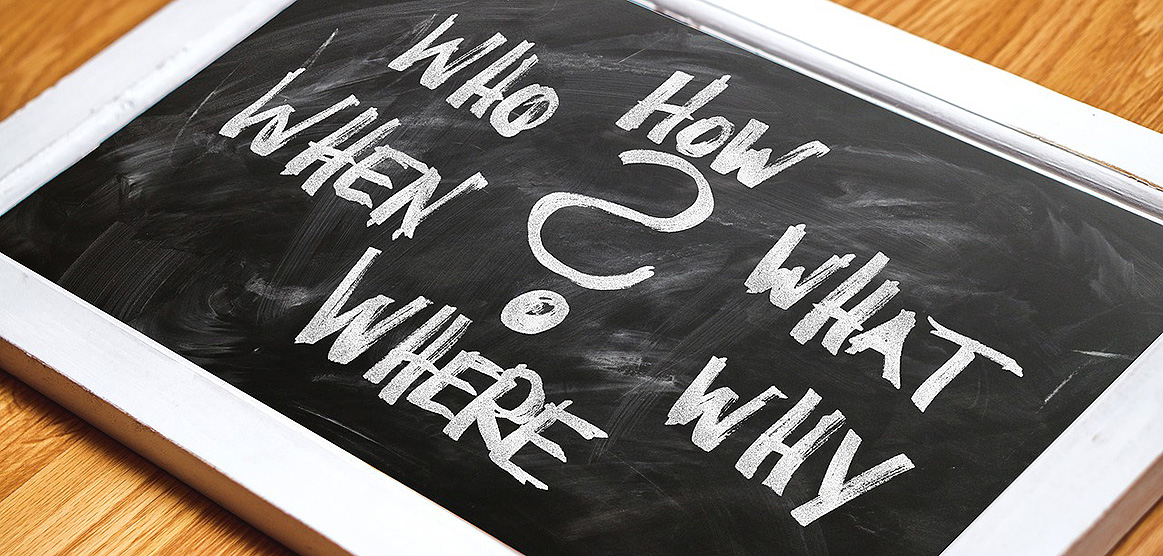 WHO HOW
WHEN ? WHAT
WHERE WHY